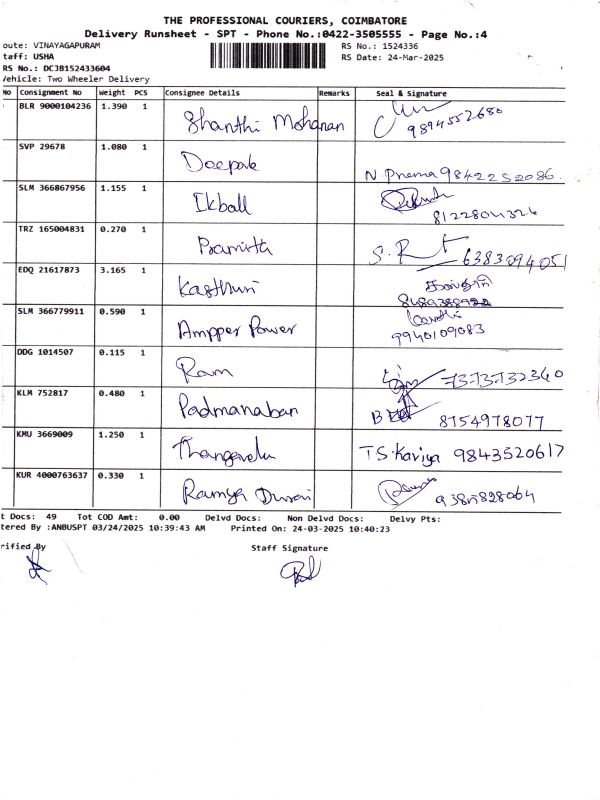 THE PROFESSIONAL COURIERS, COIMBATORE
Delivery Runsheet - SPT - Phone No.:0422-3505555 - Page No.:4
oute: VINAYAGAPURAM RS No.: 1524336
taff: USHA RS Date: 24-Mar-2025
RS No.: DCJB152433604
Vehicle: Two Wheeler Delivery
No Consignment No Weight PCS Consignee Details Remarks Seal & Signature
BLR 9000104236 1.390 1 Shanthi Mohanan 9894552680
SVP 29678 1.080 1 Deepak N Prema 9842252086.
SLM 366867956 1.155 1 Ikball 8122804324
TRZ 165004831 0.270 1 Pramirth S. R 6383094051
EDQ 21617873 3.165 1 Kasthuri
SLM 366779911 0.590 1 Ampper Power 9940109083
DDG 1014507 0.115 1 Ram 7373732340
KLM 752817 0.480 1 Padmanaban 8754978077
KMU 3669009 1.250 1 Thangavelu T.S. Kaviya 9843520617
KUR 4000763637 0.330 1 Ramya Durai 9385828064
t Docs: 49 Tot COD Amt: 0.00 Delvd Docs: Non Delvd Docs: Delvy Pts:
tered By :ANBUSPT 03/24/2025 10:39:43 AM Printed On: 24-03-2025 10:40:23
rified By Staff Signature